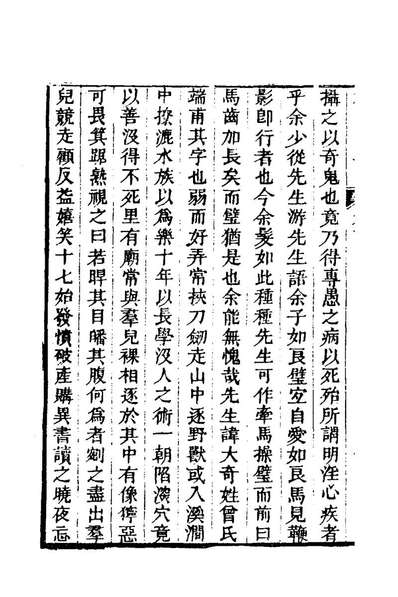 攝之以奇鬼也竟乃得專愚之病以死殆所謂明淫心疾者
乎余少從先生游先生語余子如良璧宜自愛如良馬見鞭
影卽行者也今余髮如此種種先生可作牽馬操璧而前曰
馬齒加長矣而璧猶是也余能無愧哉先生諱大奇姓曾氏
端甫其字也弱而好弄常挾刀劒走山中逐野獸或入溪澗
中撩漉水族以爲樂十年以長學沒人之術一朝陷濵穴竟
以善沒得不死里有廟常與羣兒裸相逐於其中有像獰惡
可畏箕踞熟視之曰若睅其目皤其腹何爲者剜之盡出羣
兒競走顧反益嬉笑十七始發憤破產購異書讀之曉夜忘